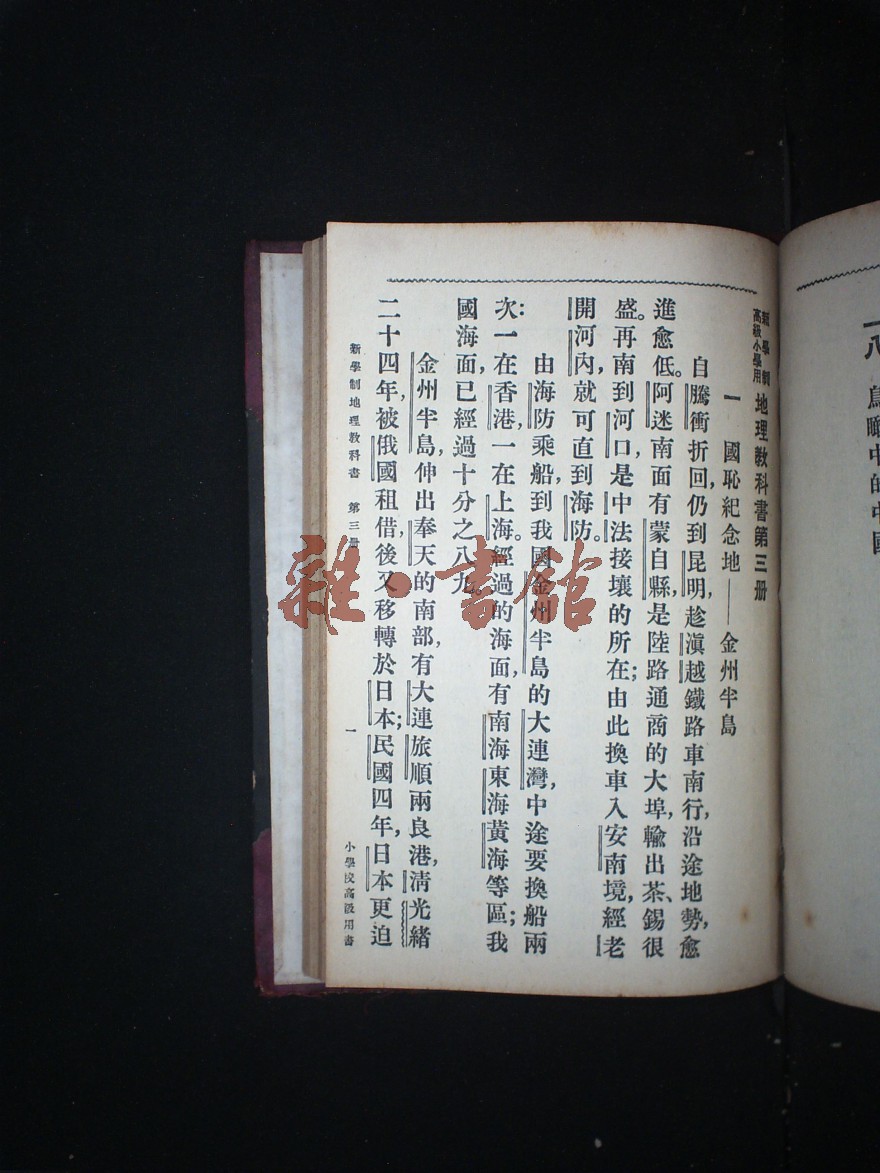 新學制高級小學用 地理教科書第三册
一 國恥紀念地——金州半島
自騰衝折回,仍到昆明,趁滇越鐵路車南行,沿途地勢,愈
進愈低。阿迷南面有蒙自縣,是陸路通商的大埠,輸出茶、錫很
盛。再南到河口,是中法接壤的所在;由此換車入安南境,經老
開河內,就可直到海防。
由海防乘船,到我國金州半島的大連灣,中途要換船兩
次:一在香港,一在上海。經過的海面,有南海東海黃海等區;我
國海面,已經過十分之八九。
金州半島,伸出奉天的南部,有大連旅順兩良港,清光緒
二十四年,被俄國租借,後又移轉於日本;民國四年,日本更迫
新學制地理教科書 第三册 一 小學校高級用書
鳥瞰中的中國
雜·書館